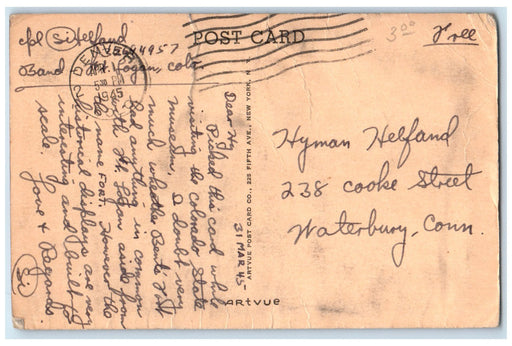 cpl Si Helfand
POST CARD
3.00
Free
Band - Ft. Logan, Colo.
DENVER
1945
Dear Hy,
Picked this card while
visiting the Colorado State
museum. I doubt very
much whether Bents Fort
had anything in common
with Ft. Logan aside from
the name FORT. However the
historical displays are very
interesting and built to
scale.
Love & Regards
Si
31 MAR 45
ARTVUE POST CARD CO., 225 FIFTH AVE., NEW YORK, N. Y.
ARTVUE
Hyman Helfand
238 Cooke Street
Waterbury, Conn.